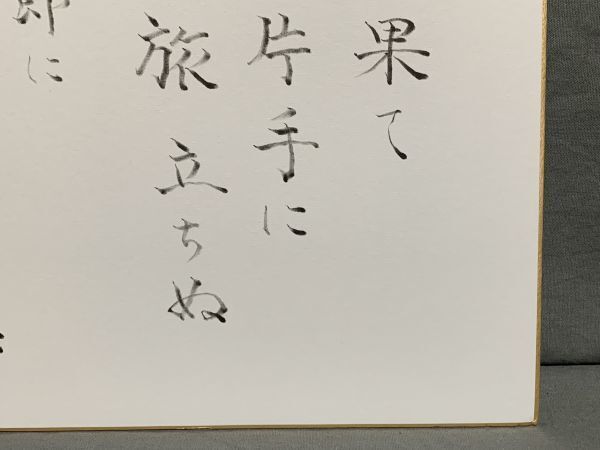 果て
片手に
旅立ちぬ
郎に